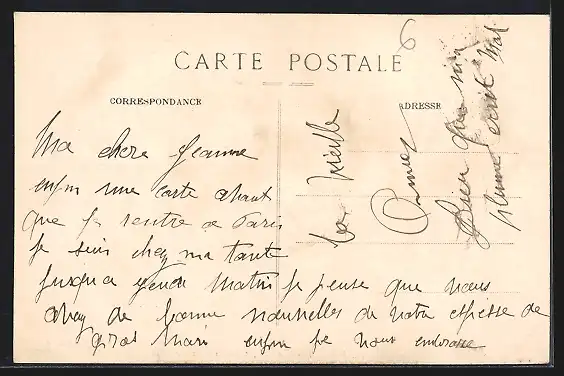 6
CARTE POSTALE
CORRESPONDANCE
ADRESSE
Ma chere Jeanne
enfin une carte avant
que je rentre a Paris
je suis chez ma tante
jusqu a jeudi Matin je pense que vous
avez de bonne nouvelles de votre espesse de
gros Mari enfin je vous embrasse
Bien que ma
plume ecrit mal